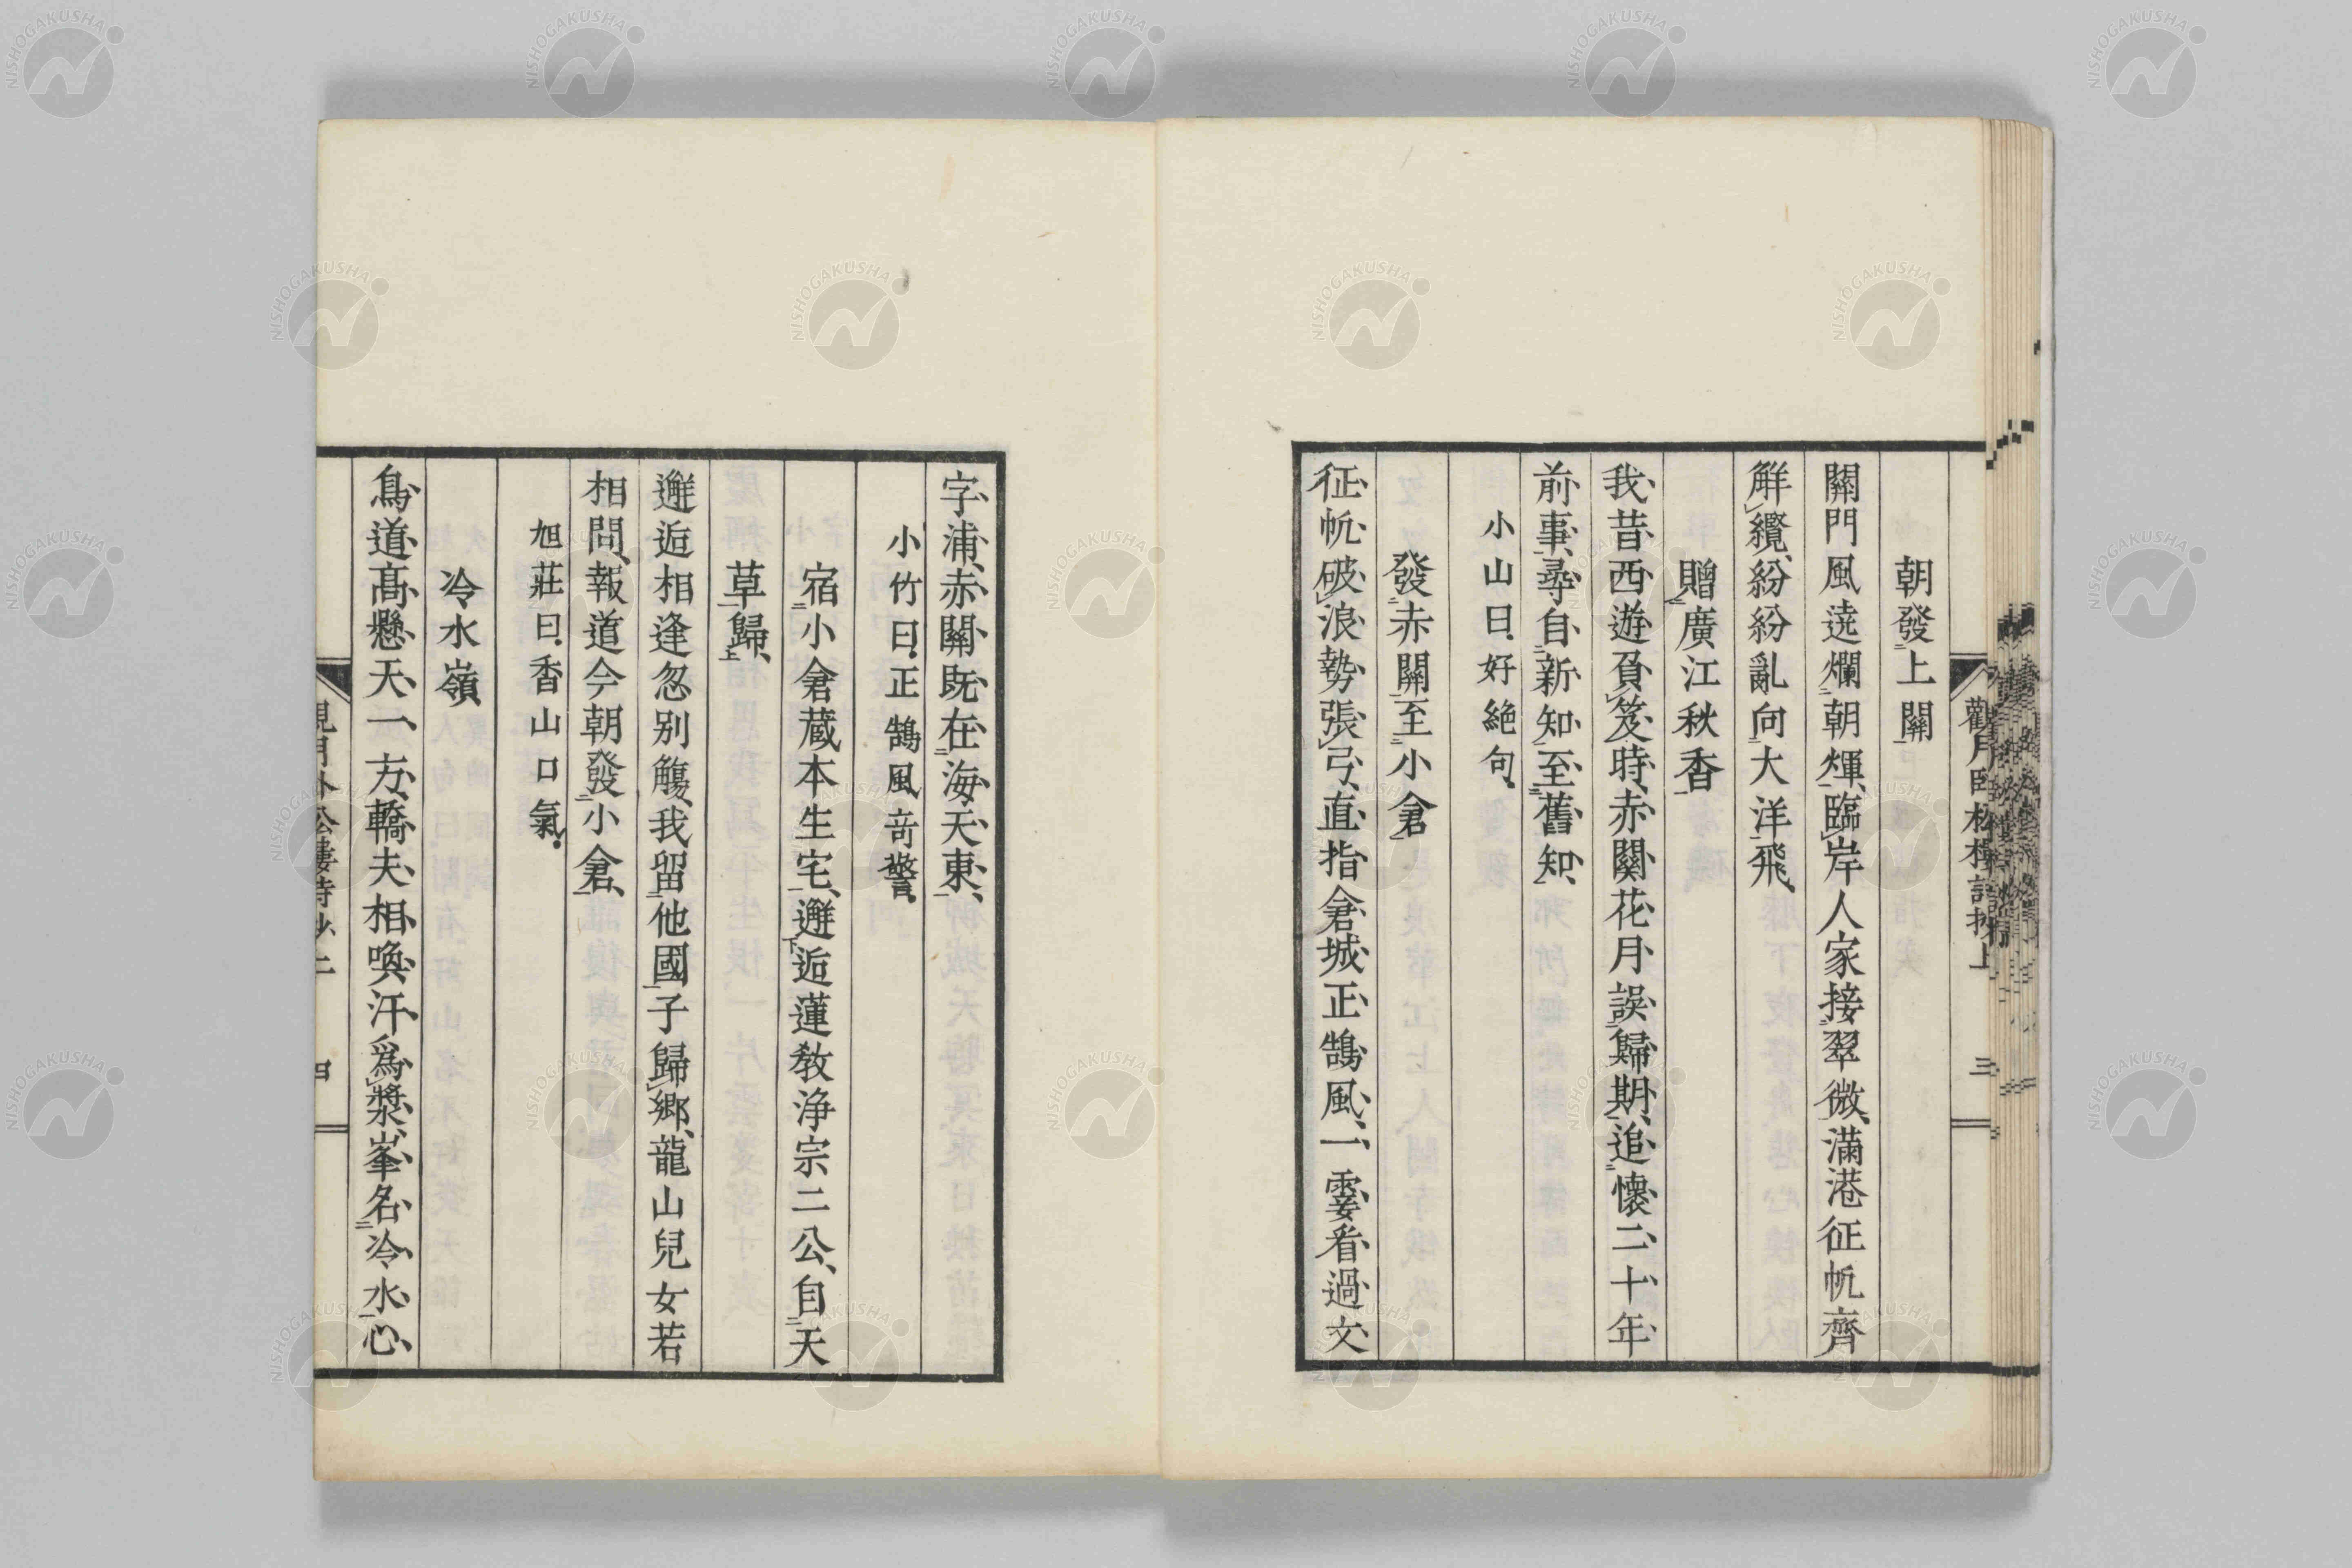 朝發上關
關門風遶爛朝煇臨岸人家接翠微滿港征帆齊
解纜紛紛亂向大洋飛
贈廣江秋香
我昔西遊負笈時赤關花月誤歸期追懷二十年
前事尋自新知至舊知
小山曰好絶句
發赤關至小倉
征帆破浪勢張弓直指倉城正鵠風一霎看過文
字浦赤關既在海天東
小竹曰正鵠風奇警
宿小倉蔵本生宅邂逅蓮教浄宗二公自天
草歸
邂逅相逢忽別觴我留他國子歸郷龍山兒女若
相問報道今朝發小倉
旭莊曰香山口氣
冷水嶺
鳥道高懸天一方轎夫相喚汗爲漿峯名冷水心